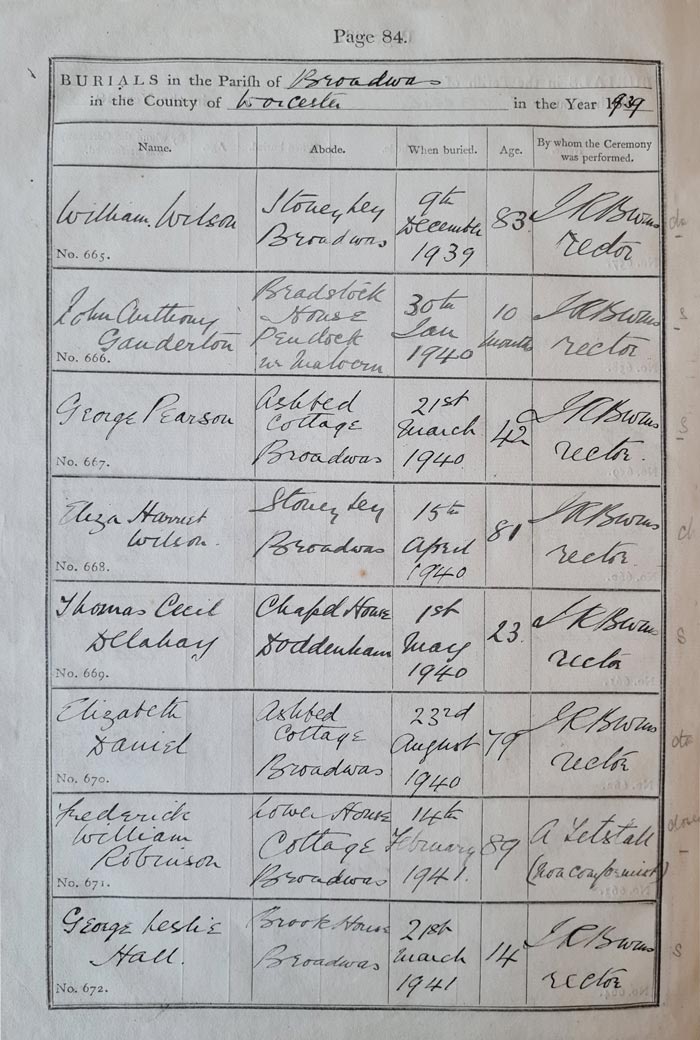 Page 84.
BURIALS in the Parish of Broadwas
in the County of Worcester in the Year 1939
Name. Abode. When buried. Age. By whom the Ceremony was performed.
William Wilson
No. 665.
Stoney Ley
Broadwas
9th
December
1939
83
rector
John Anthony
Ganderton
No. 666.
Bradstock
House
Pendock
nr Malvern
30th
Jan
1940
10
months
rector
George Pearson
No. 667.
Ashbed
Cottage
Broadwas
21st
March
1940
42
rector
Eliza Harriet
Wilson
No. 668.
Stoney Ley
Broadwas
15th
April
1940
81
rector
Thomas Cecil
Delahay
No. 669.
Chapel House
Doddenham
1st
May
1940
23
rector
Elizabeth
Daniel
No. 670.
Ashbed
Cottage
Broadwas
23rd
August
1940
79
rector
Frederick
William
Robinson
No. 671.
Lower House
Cottage
Broadwas
14th
February
1941.
89
A
(nonconformist)
George Leslie
Hall.
No. 672.
Brook House
Broadwas
21st
March
1941
14
rector